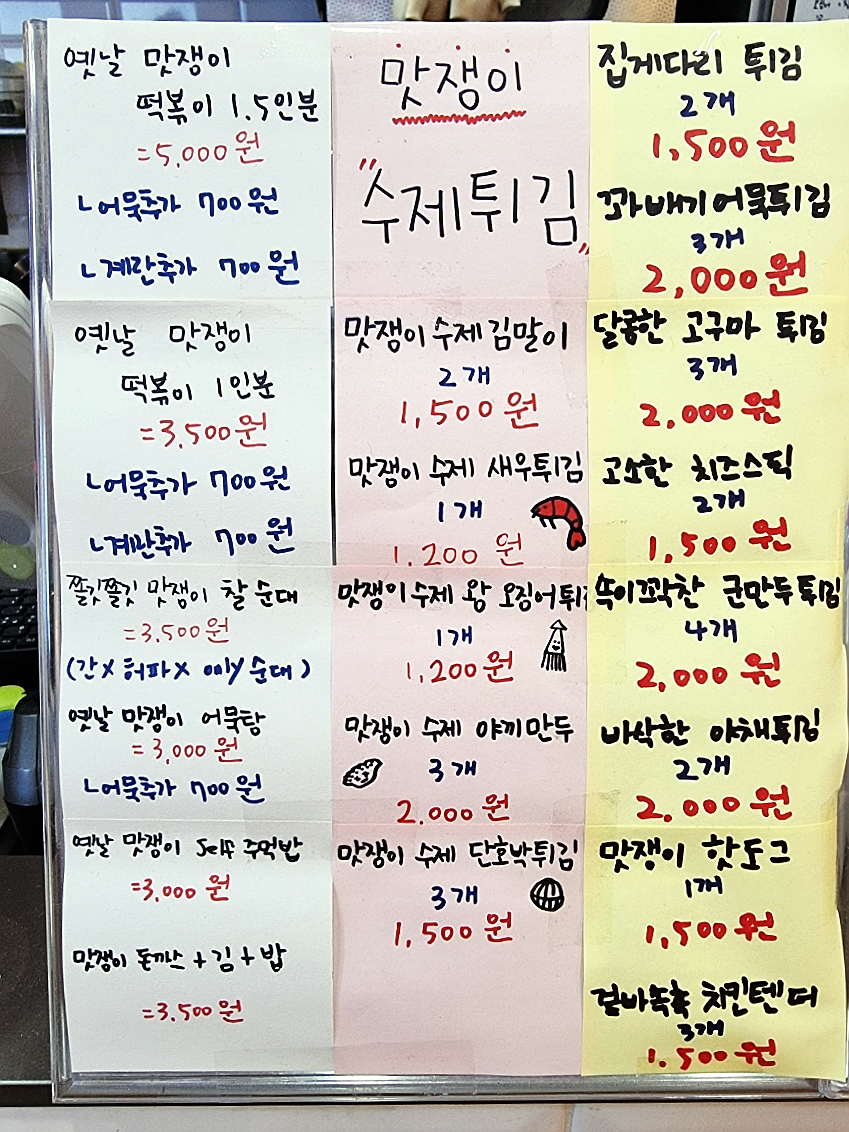 옛날 맛쟁이
떡볶이 1.5인분
=5,000원
ㄴ어묵추가 700원
ㄴ계란추가 700원
옛날 맛쟁이
떡볶이 1인분
=3,500원
ㄴ어묵추가 700원
ㄴ계란추가 700원
쫄깃쫄깃 맛쟁이 찰순대
=3,500원
(간X 허파X only 순대)
옛날 맛쟁이 어묵탕
=3,000원
ㄴ어묵추가 700원
옛날 맛쟁이 Self 주먹밥
=3,000원
맛쟁이 돈까스+김+밥
=3,500원
맛쟁이
"수제튀김"
맛쟁이 수제 김말이
2개
1,500원
맛쟁이 수제 새우튀김
1개
1,200원
맛쟁이 수제 왕 오징어튀김
1개
1,200원
맛쟁이 수제 야끼만두
3개
2,000원
맛쟁이 수제 단호박튀김
3개
1,500원
집게다리 튀김
2개
1,500원
꽈배기어묵튀김
3개
2,000원
달콩한 고구마 튀김
3개
2,000원
고소한 치즈스틱
2개
1,500원
속이꽉찬 군만두튀김
4개
2,000원
바삭한 야채튀김
2개
2,000원
맛쟁이 핫도그
1개
1,500원
겉바속촉 치킨텐더
3개
1,500원